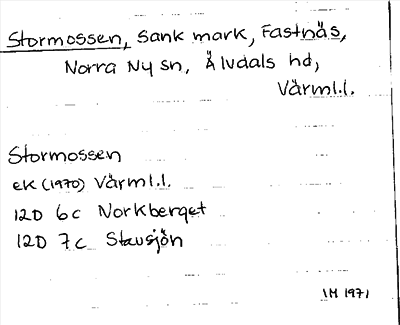 Stormossen, sank mark, Fastnäs,
Norra Ny sn, Älvdals hd,
Värml.l.
Stormossen
ek (1970) Värml.l.
12D 6c Norkberget
12D 7c Stausjön
IM 1971